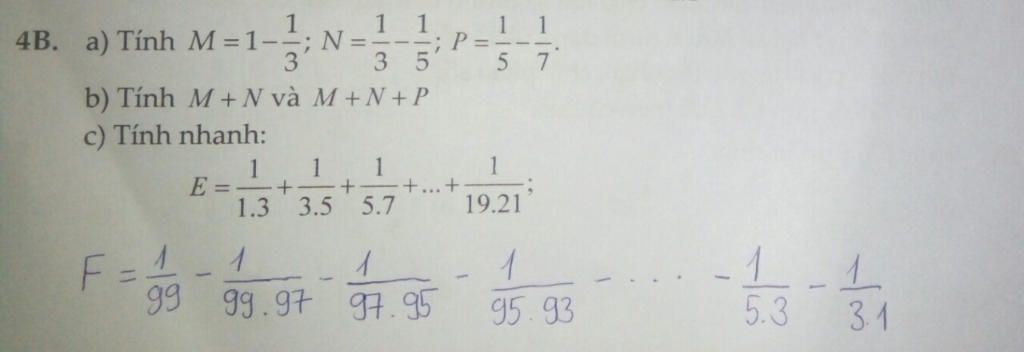 4B. a) Tính M = 1 - 1/3; N = 1/3 - 1/5; P = 1/5 - 1/7.
b) Tính M + N và M + N + P
c) Tính nhanh:
E = 1/1.3 + 1/3.5 + 1/5.7 + ... + 1/19.21;
F = 1/99 - 1/99.97 - 1/97.95 - 1/95.93 - .... - 1/5.3 - 1/3.1